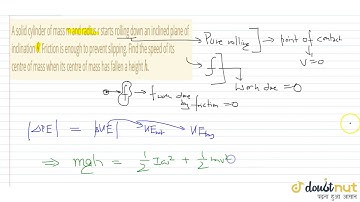 A solid cylinder of mass m and radius r starts rolling down an inclined plane of
inclination θ. Friction is enough to prevent slipping. Find the speed of its
centre of mass when its centre of mass has fallen a height h.
Pure rolling → point of contact
V=0
f → work done = 0
f work done by friction = 0
|ΔPE| = |ΔKE| KErot KEtrans
⇒ mgh = 1/2 Iω² + 1/2 mv²
doubtnut
पढ़ना हुआ आसान